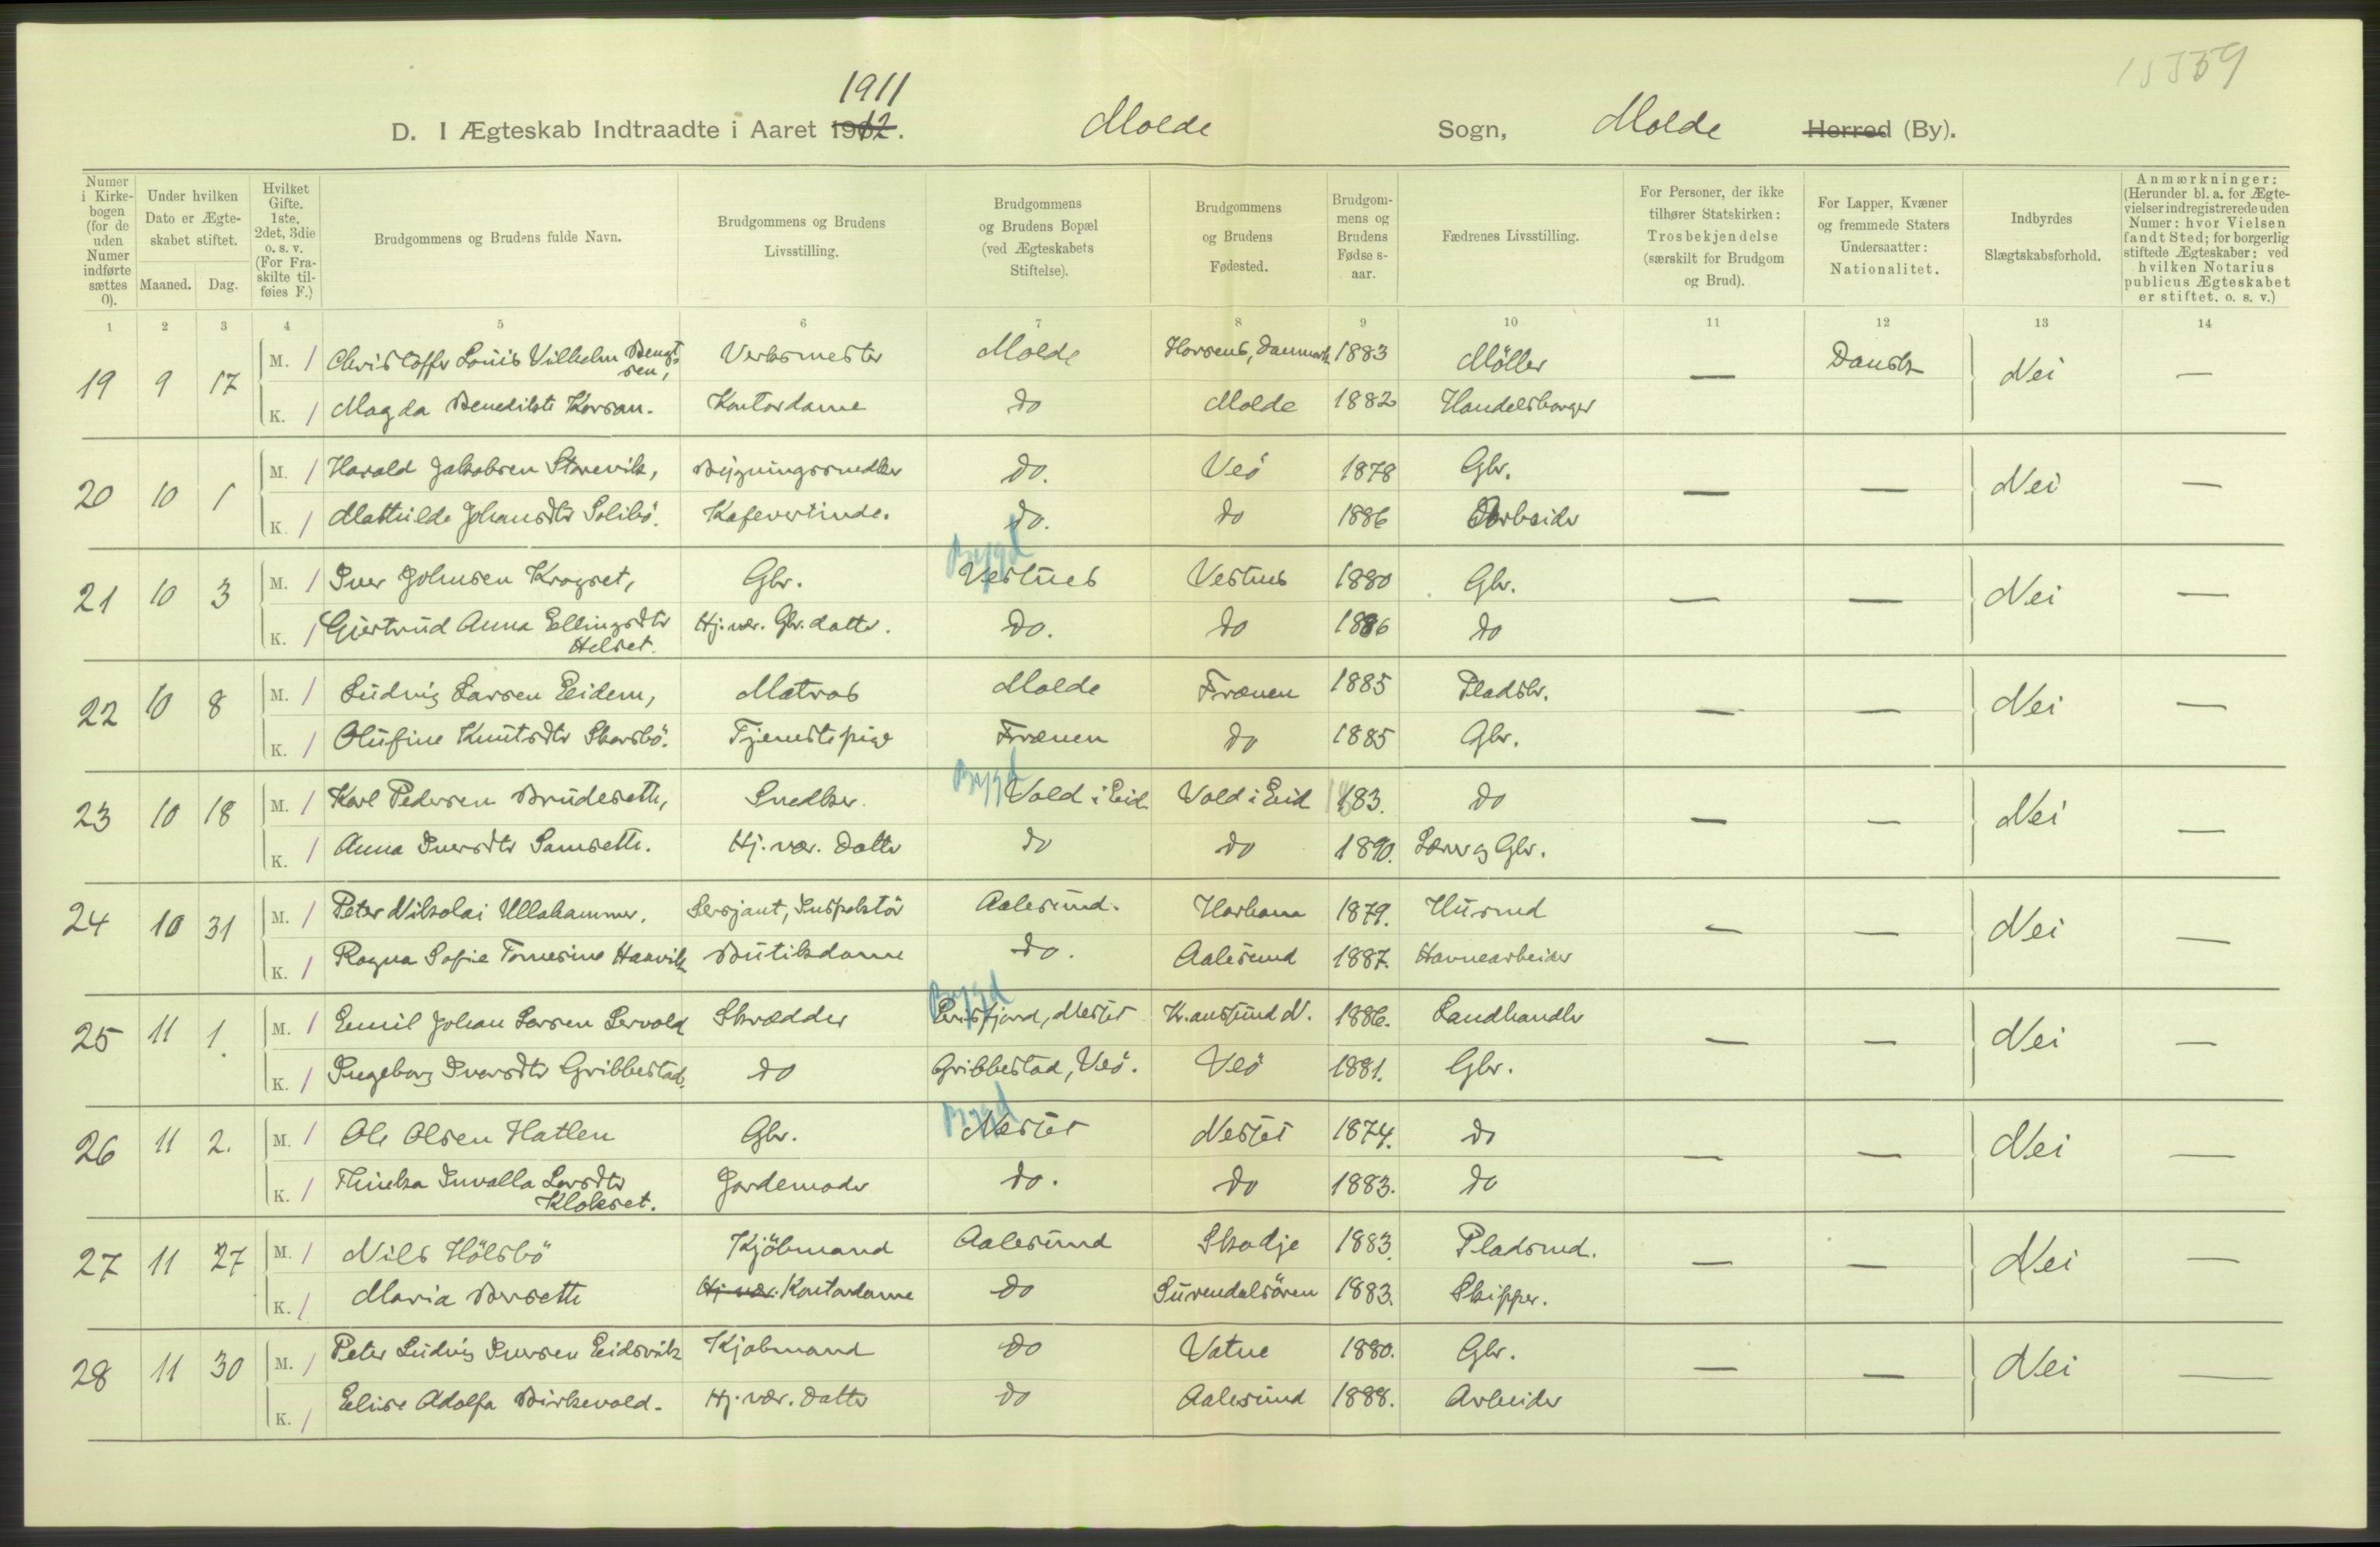 15559
1911
D. I Ægteskab Indtraadte i Aaret 1912. Molde Sogn, Molde Herred (By).
Numer i Kirkebogen (for de uden Numer indførte sættes 0).
Under hvilken Dato er Ægteskabet stiftet.
Maaned. Dag.
Hvilket Gifte. 1ste, 2det, 3die o. s. v. (For Fraskilte tilføies F.)
Brudgommens og Brudens fulde Navn.
Brudgommens og Brudens Livsstilling.
Brudgommens og Brudens Bopæl (ved Ægteskabets Stiftelse).
Brudgommens og Brudens Fødested.
Brudgommens og Brudens Fødse s-aar.
Fædrenes Livsstilling.
For Personer, der ikke tilhører Statskirken: Trosbekjendelse (særskilt for Brudgom og Brud).
For Lapper, Kvæner og fremmede Staters Undersaatter: Nationalitet.
Indbyrdes Slægtskabsforhold.
Anmærkninger: (Herunder bl. a. for Ægtevielser indregistrerede uden Numer: hvor Vielsen fandt Sted; for borgerlig stiftede Ægteskaber: ved hvilken Notarius publicus Ægteskabet er stiftet. o. s. v.)
1 2 3 4 5 6 7 8 9 10 11 12 13 14
19 9 17 M. 1 Christoffer Louis Vilhelm Bengtsen, Verksmester Molde Horsens, Danmark 1883 Möller — Dansk Nei —
K. 1 Magda Benedikte Korsan. Kontordame do Molde 1882 Handelsborger
20 10 1 M. 1 Harald Jakobsen Storevik, Bygningssnedker do. Veö 1878 Gbr. — — Nei —
K. 1 Mathilde Johansdtr Solibö. Kafevertinde. do. do 1886 Arbeider
Bygd
21 10 3 M. 1 Iver Johnsen Krogset, Gbr. Vestnes Vestnes 1880 Gbr. — — Nei —
K. 1 Gjertrud Anna Ellingsdtr Helset. Hj. vær. Gbr. datter. do. do 1886 do
22 10 8 M. 1 Ludvig Larsen Eidem, Matros Molde Frænen 1885 Pladsbr. — — Nei —
K. 1 Olufine Knutsdtr Skarsbö. Tjenestepige Frænen do 1885 Gbr.
Bygd
23 10 18 M. 1 Karl Pedersen Brudesette, Snedker. Vold i Eid Vold i Eid 183. do — — Nei —
K. 1 Anna Iversdtr Samsette. Hj. vær. datter do do 1890. Lærer og Gbr.
24 10 31 M. 1 Peter Nikolai Ullahammer. Sersjant, Inspektör Aalesund. Harham 1879. Husmd — — Nei —
K. 1 Ragna Sofie Tomesine Haavik Butikdame do. Aalesund 1887. Havnearbeider
Bygd
25 11 1. M. 1 Emil Johan Larsen Servold Skrædder Eirisfjord, Nesset K.ansund N. 1886. Landhandler — — Nei —
K. 1 Ingeborg Iversdtr Gribbestad. do Gribbestad, Veö. Veö 1881. Gbr.
Bygd
26 11 2. M. 1 Ole Olsen Hatlen Gbr. Nesset Nesset 1874. do — — Nei —
K. 1 Larsdtr Klokset. Jordemoder do. do 1883. do
27 11 27 M. 1 Nils Hölsbö Kjöbmand Aalesund Skodje 1883. Pladsmd. — — Nei —
K. 1 Maria Bersette Hj. vær. Kontordame do Surendalsören 1883. Skipper.
28 11 30 M. 1 Peter Ludvig Iversen Eidsvik Kjøbmand do Vatne 1880. Gbr. — — Nei —
K. 1 Elise Adolfa Birkevold. Hj. vær. datter do Aalesund 1888. Arbeider